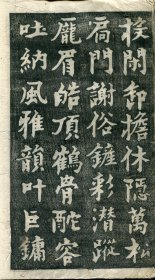 投閑卸擔休隱萬松
扃門謝俗鏟彩潛蹤
龐眉皓頂鶴骨酡容
吐納風雅韻叶巨鏞